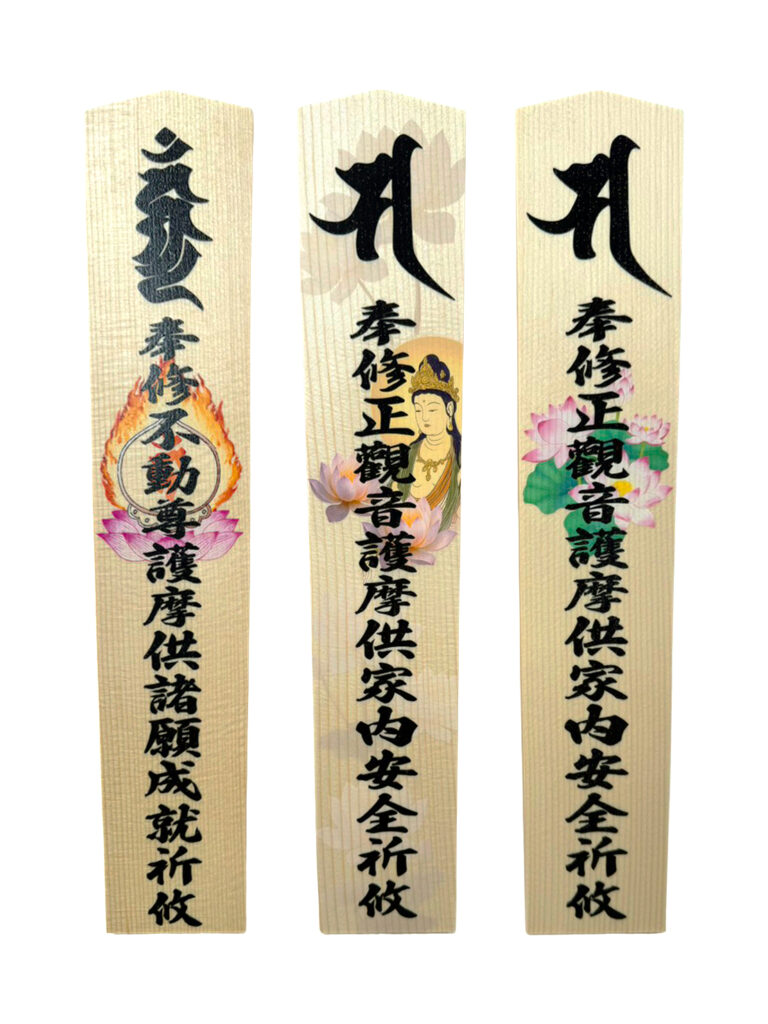 奉修不動尊護摩供諸願成就祈攸
𑖭
奉修正觀音護摩供家内安全祈攸
𑖭
奉修正觀音護摩供家内安全祈攸